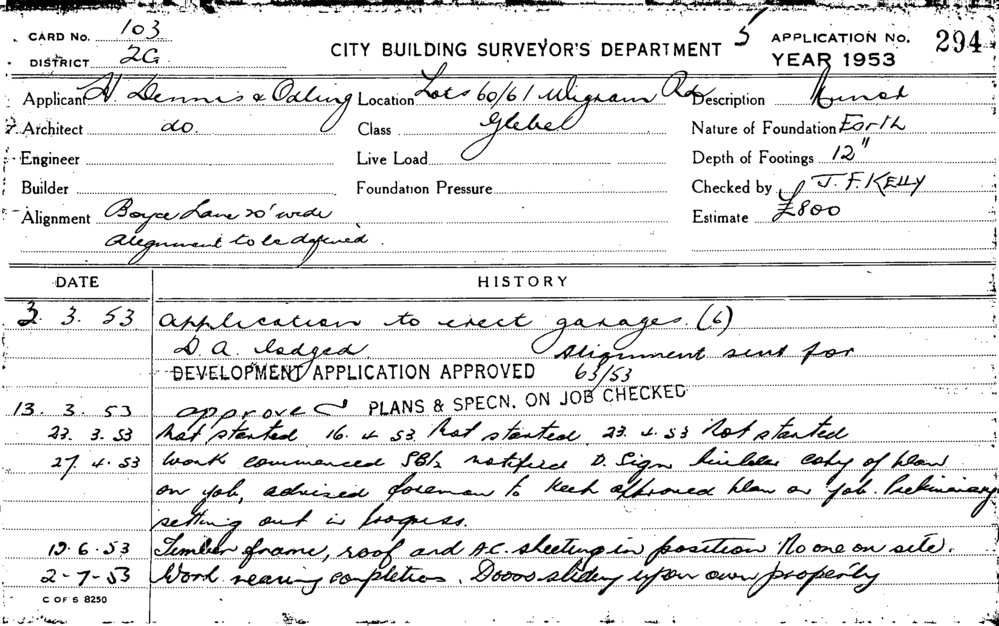 CARD NO. 103
CITY BUILDING SURVEYOR'S DEPARTMENT 5
APPLICATION NO. 294
DISTRICT 2G
YEAR 1953
Applicant H. Dennis & Odling Location Lots 60/61 Wigram Rd Description Minor
Architect do. Class Glebe Nature of Foundation Earth
Engineer Live Load Depth of Footings 12"
Builder Foundation Pressure Checked by J. F. KELLY
Alignment Boyce Lane 20' wide Estimate £800
Alignment to be defined.
DATE HISTORY
3. 3. 53 Application to erect garages. (6)
D.A. lodged. Alignment sent for
DEVELOPMENT APPLICATION APPROVED 63/53
13. 3. 53 approved PLANS & SPECN. ON JOB CHECKED
23. 3. 53 Not started 16. 4. 53 Not started. 23. 4. 53 Not started
27. 4. 53 Work commenced notified D. Sign copy of plan
on job, advised foreman to keep approved plan on job. Preliminary
setting out in progress.
19. 6. 53 Timber frame, roof and A.C. sheeting in position No one on site.
2-7-53 Work nearing completion. Doors sliding upon own property
C OF S 8250